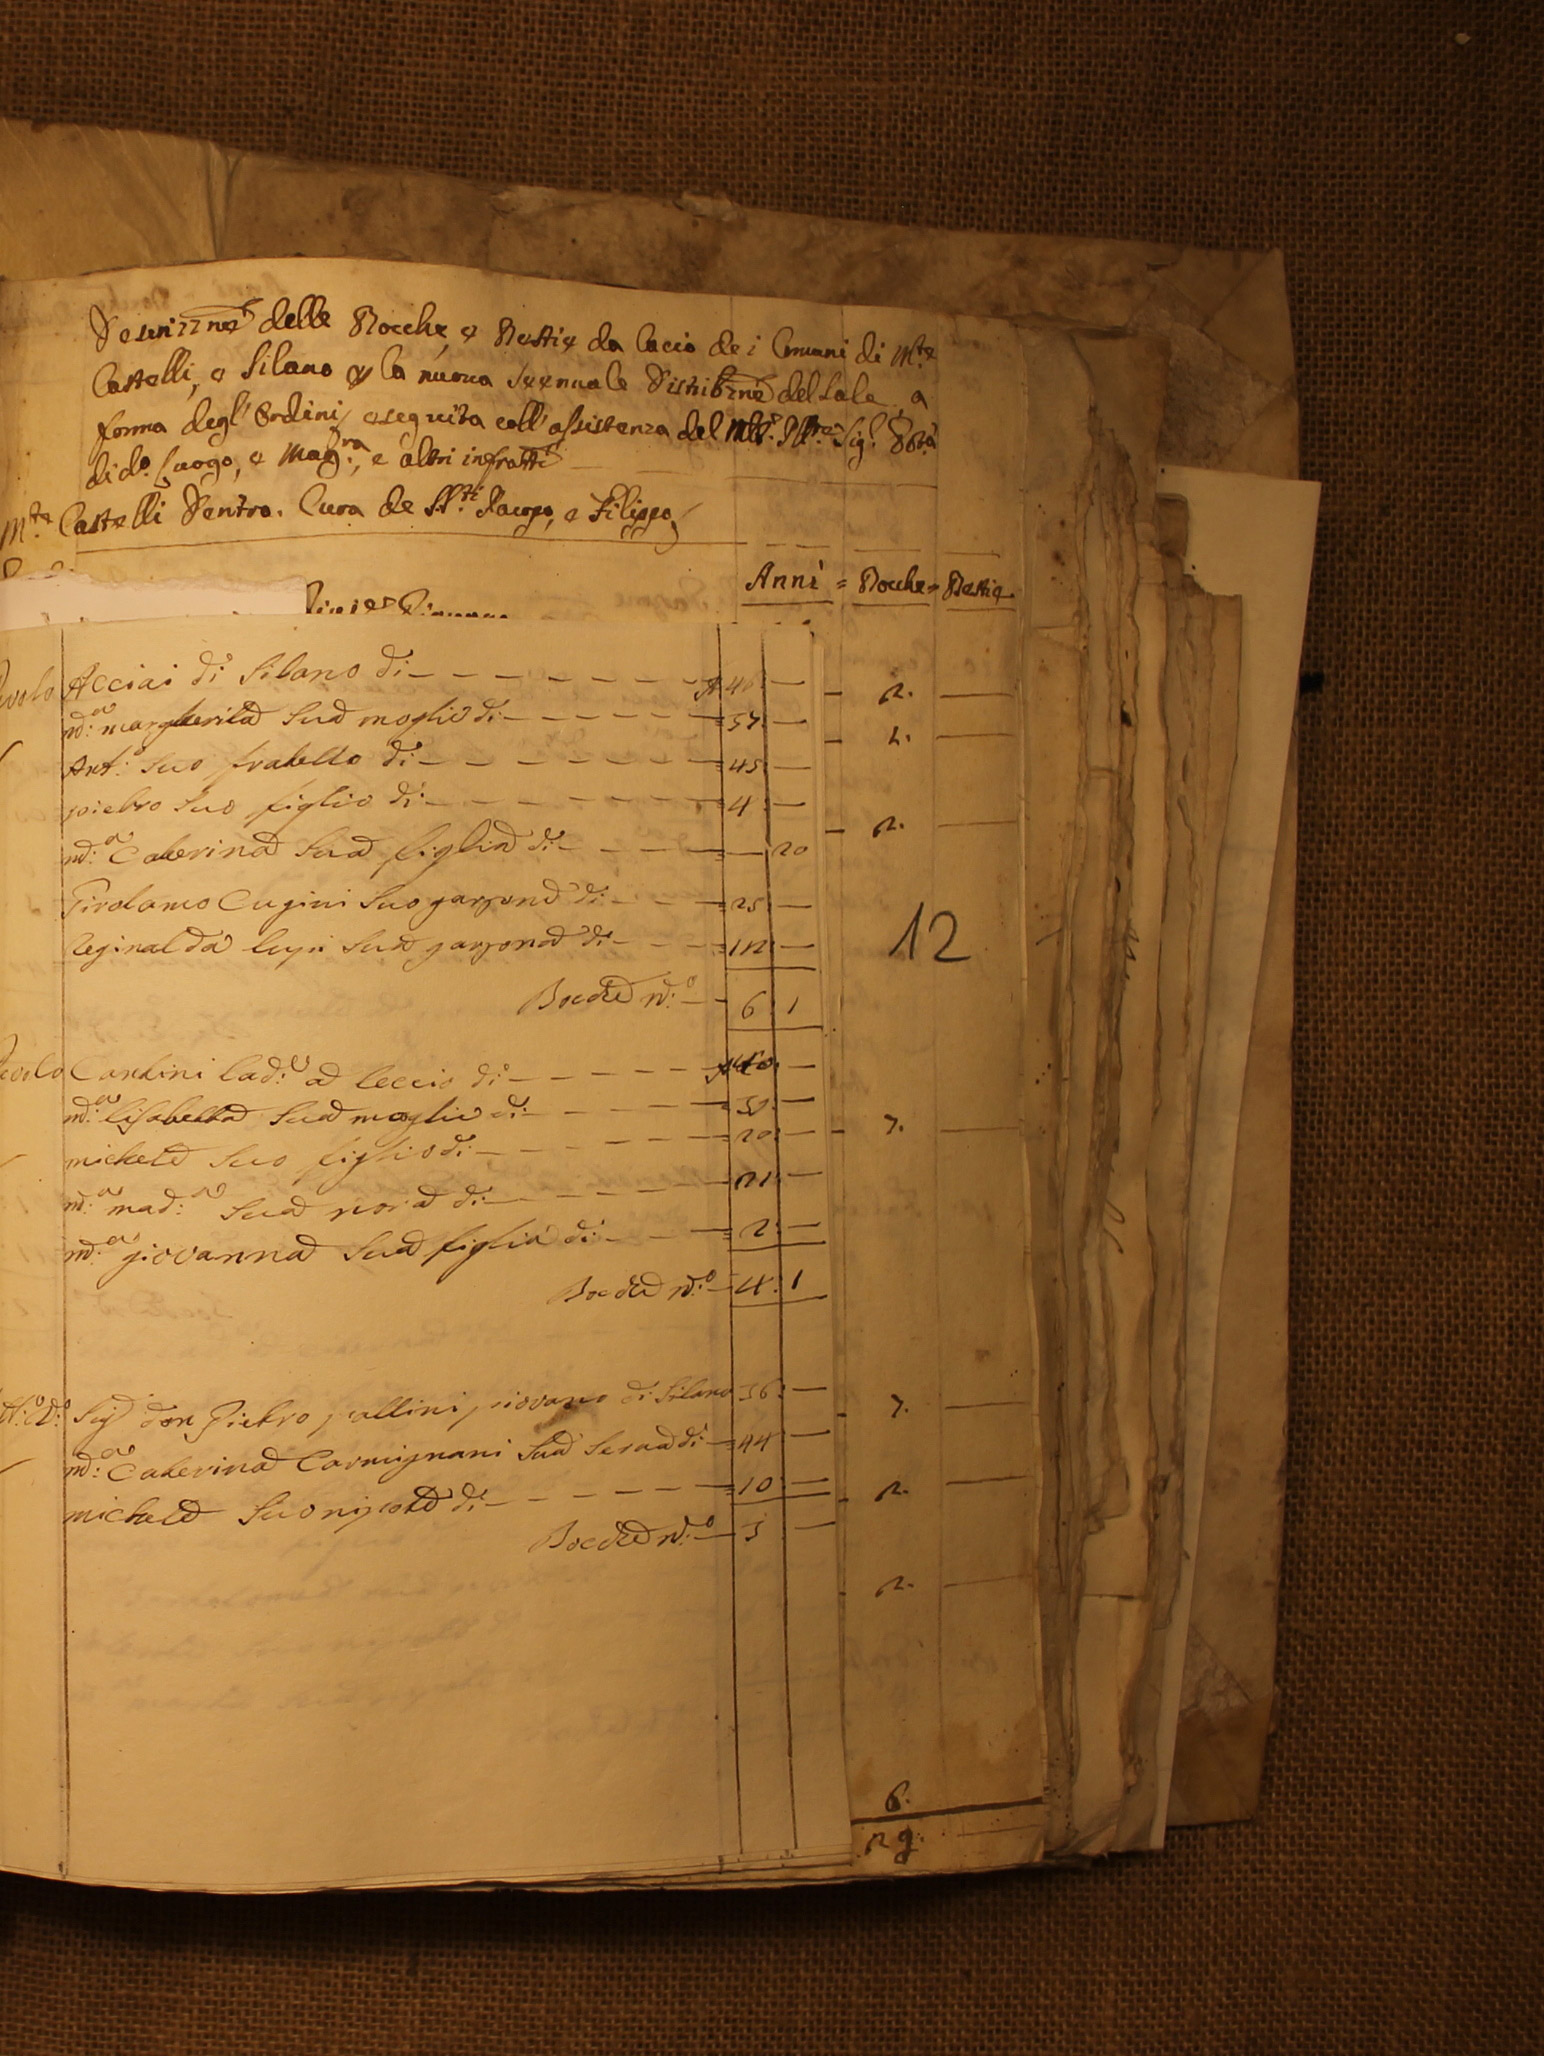 Descrizzne delle Bocche, e Bestie da Cacio dei Comuni di Mte
Castelli, e Silano p la nuova Seennale Distribzne del Sale, a
forma degl' Ordini, eseguita coll' assistenza del Mlt. Illre Sig. Potà
di do. Luogo, e Magra, e altri infratti
Mte Castelli Dentro. Cura de SSti Jacopo, e Filippo
Anni = Bocche = Bestie
Acciai di Silano di — — — — A 40 —
md:a margherita Sua moglie di — — = 37 —
Ant:o Suo fratello di — — — = 45 —
pietro Suo figlio di — — — = 4 —
md:a Caterina Sua figlia di — — — 20
Girolamo Cugini Suo garzone di — — = 25 —
Reginalda lupi Sua garzona di — — = 12 —
Bocche n:o — 6 1
Cantini lad:o a leccio di — — — A 40 —
md:a lisabetta Sua moglie di — — = 39 —
michele Suo figlio di — — — = 20 —
md:a mad:a Sua nora di — — — = 21 —
md:a giovanna Sua figlia di — — = 2 —
Bocche n:o — 4 1
Sig don Pietro pallini piovano di Silano 36 —
md:a Caterina Carmignani Sua Serva di — = 44 —
michele Suo nipote di — — — = 10 —
Bocche n:o — 3 —
2.
2.
2.
12
7.
7.
2.
2.
6.
29.